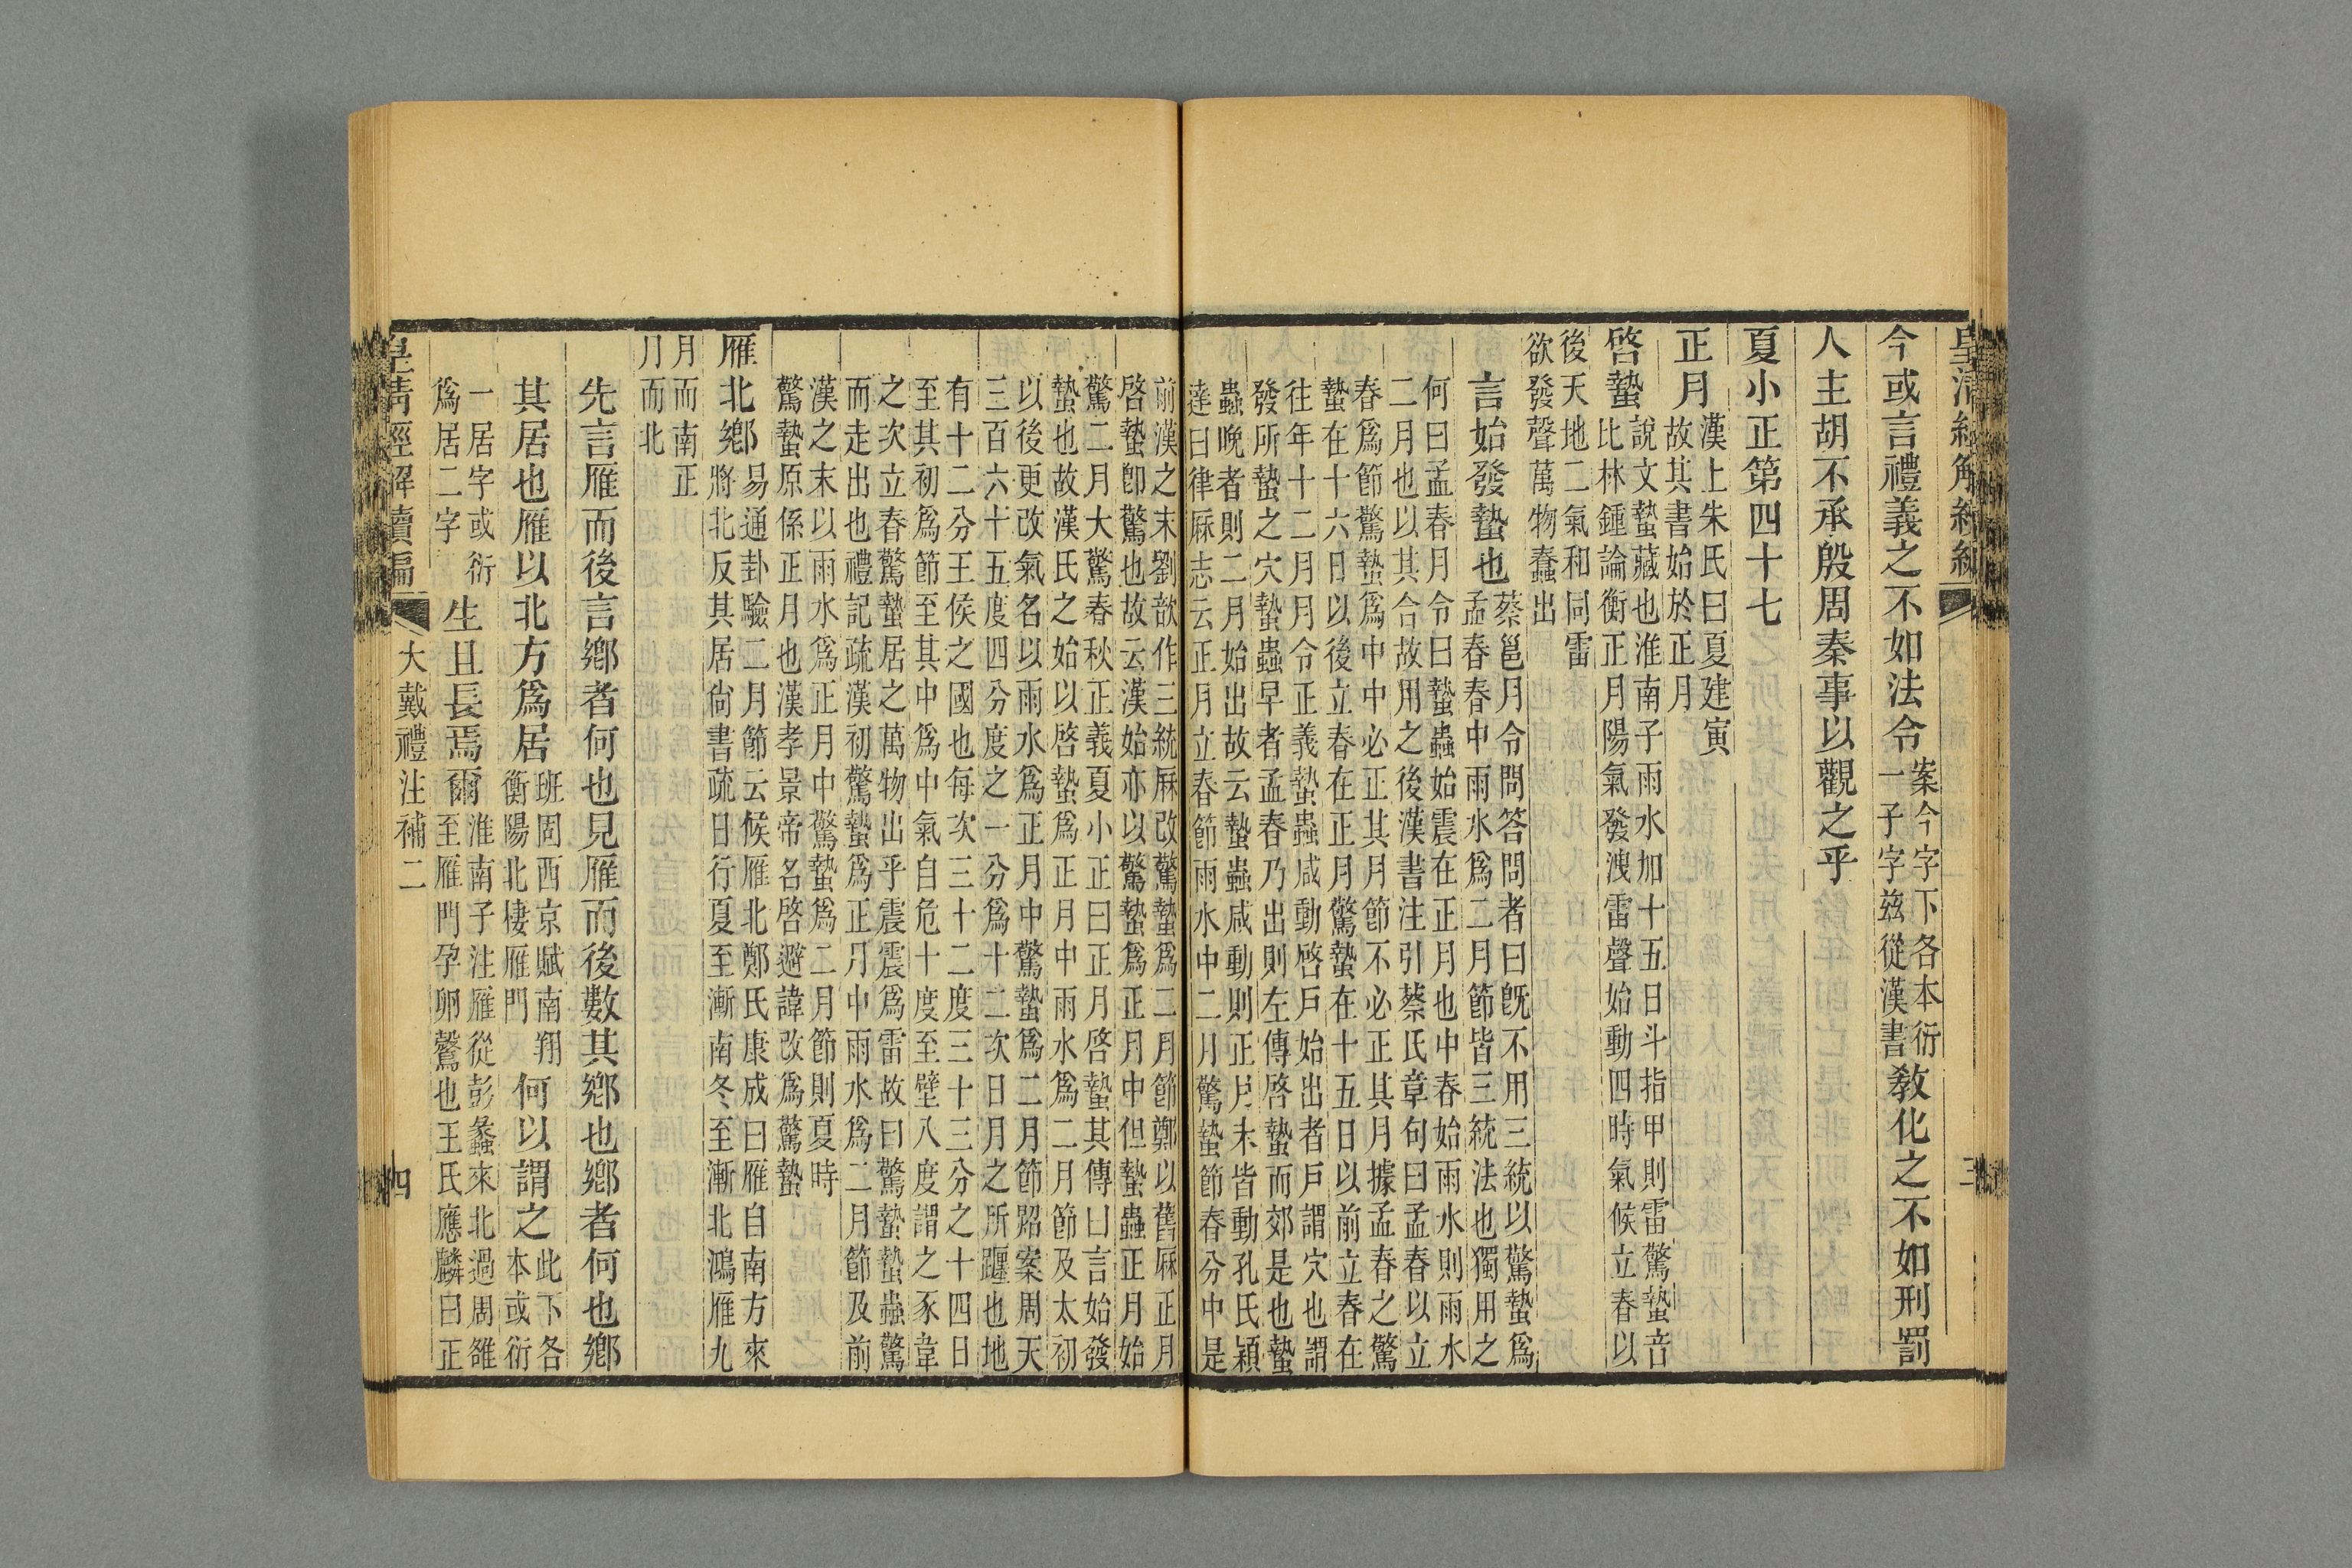 皇清經解續編
三
今或言禮義之不如法令
案今字下各本衍
一子字茲從漢書
教化之不如刑罰
人主胡不承殷周秦事以觀之乎
夏小正第四十七
正月
漢上朱氏曰夏建寅
故其書始於正月
啓蟄
說文蟄藏也淮南子雨水加十五日斗指甲則雷驚蟄音
比林鍾論衡正月陽氣發洩雷聲始動四時氣候立春以
後天地二氣和同雷
欲發聲萬物蠢出
言始發蟄也
蔡邕月令問答問者曰旣不用三統以驚蟄爲
孟春春中雨水爲二月節皆三統法也獨用之
何曰孟春月令曰蟄蟲始震在正月也中春始雨水則雨水
二月也以其合故用之後漢書注引蔡氏章句曰孟春以立
春爲節驚蟄爲中中必正其月節不必正其月據孟春之驚
蟄在十六日以後立春在正月驚蟄在十五日以前立春在
往年十二月月令正義蟄蟲咸動啓戶始出者戶謂穴也謂
發所蟄之穴蟄蟲早者孟春乃出則左傳啓蟄而郊是也蟄
蟲晚者則二月始出故云蟄蟲咸動則正月未皆動孔氏穎
達曰律厤志云正月立春節雨水中二月驚蟄節春分中是
前漢之末劉歆作三統厤改驚蟄爲二月節鄭以舊厤正月
啓蟄卽驚也故云漢始亦以驚蟄爲正月中但蟄蟲正月始
驚二月大驚春秋正義夏小正曰正月啓蟄其傳曰言始發
蟄也故漢氏之始以啓蟄爲正月中雨水爲二月節及太初
以後更改氣名以雨水爲正月中驚蟄爲二月節炤案周天
三百六十五度四分度之一分爲十二次日月之所躔也地
有十二分王侯之國也每次三十二度三十三分之十四日
至其初爲節至其中爲中氣自危十度至壁八度謂之豕韋
之次立春驚蟄居之萬物出乎震震爲雷故曰驚蟄蟄蟲驚
而走出也禮記疏漢初驚蟄爲正月中雨水爲二月節及前
漢之末以雨水爲正月中驚蟄爲二月節則夏時
驚蟄原係正月也漢孝景帝名啓避諱改爲驚蟄
雁北鄉
易通卦驗二月節云候雁北鄭氏康成曰雁自南方來
將北反其居尙書疏日行夏至漸南冬至漸北鴻雁九
月而南正
月而北
先言雁而後言鄉者何也見雁而後數其鄉也鄉者何也鄉
其居也雁以北方爲居
班固西京賦南翔
衡陽北棲雁門
何以謂之
此下各
本或衍
一居字或衍
爲居二字
生且長焉爾
淮南子注雁從彭蠡來北過周雒
至雁門孕卵鷇也王氏應麟曰正
皇清經解續編
大戴禮注補二
四